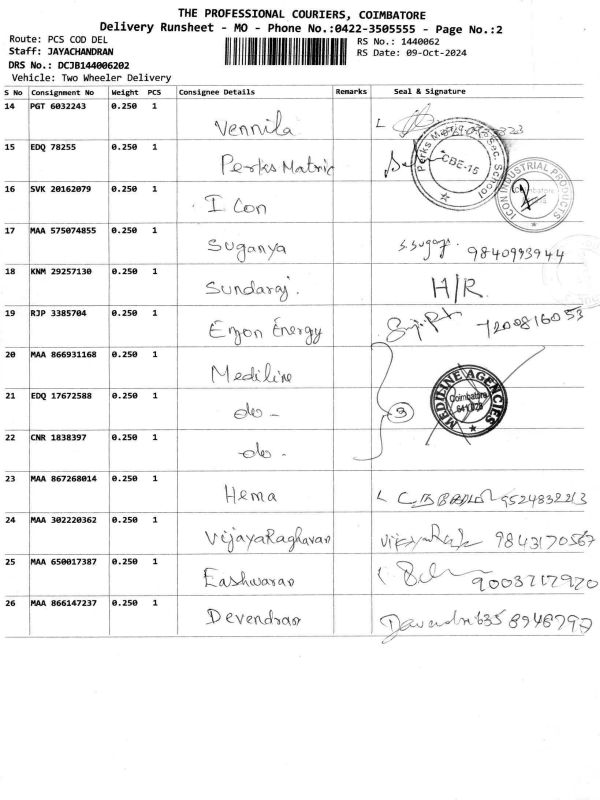 THE PROFESSIONAL COURIERS, COIMBATORE
Delivery Runsheet - MO - Phone No.:0422-3505555 - Page No.:2
Route: PCS COD DEL
RS No.: 1440062
Staff: JAYACHANDRAN
RS Date: 09-Oct-2024
DRS No.: DCJB144006202
Vehicle: Two Wheeler Delivery
S No Consignment No Weight PCS Consignee Details Remarks Seal & Signature
14 PGT 6032243 0.250 1 Vennila
15 EDQ 78255 0.250 1 Perks Matric Perks Sec. School CBE-15
16 SVK 20162079 0.250 1 I Con ICON INDUSTRIAL PRODUCTS Coimbatore
17 MAA 575074855 0.250 1 Suganya S.Suga 9840993944
18 KNM 29257130 0.250 1 Sundaraj. H/R
19 RJP 3385704 0.250 1 Energy 7200816053
20 MAA 866931168 0.250 1 Mediline
21 EDQ 17672588 0.250 1 -do- 3 MEDILINE AGENCIES Coimbatore
22 CNR 1838397 0.250 1 -do-
23 MAA 867268014 0.250 1 Hema 9524832213
24 MAA 302220362 0.250 1 VijayaRaghavan 9843170567
25 MAA 650017387 0.250 1 Eashwaran 9003717920
26 MAA 866147237 0.250 1 Devendran